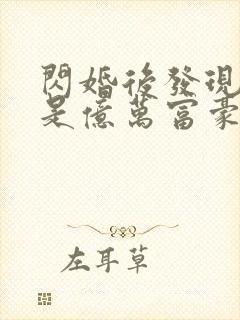 閃婚後發現
是億萬富豪
左耳草